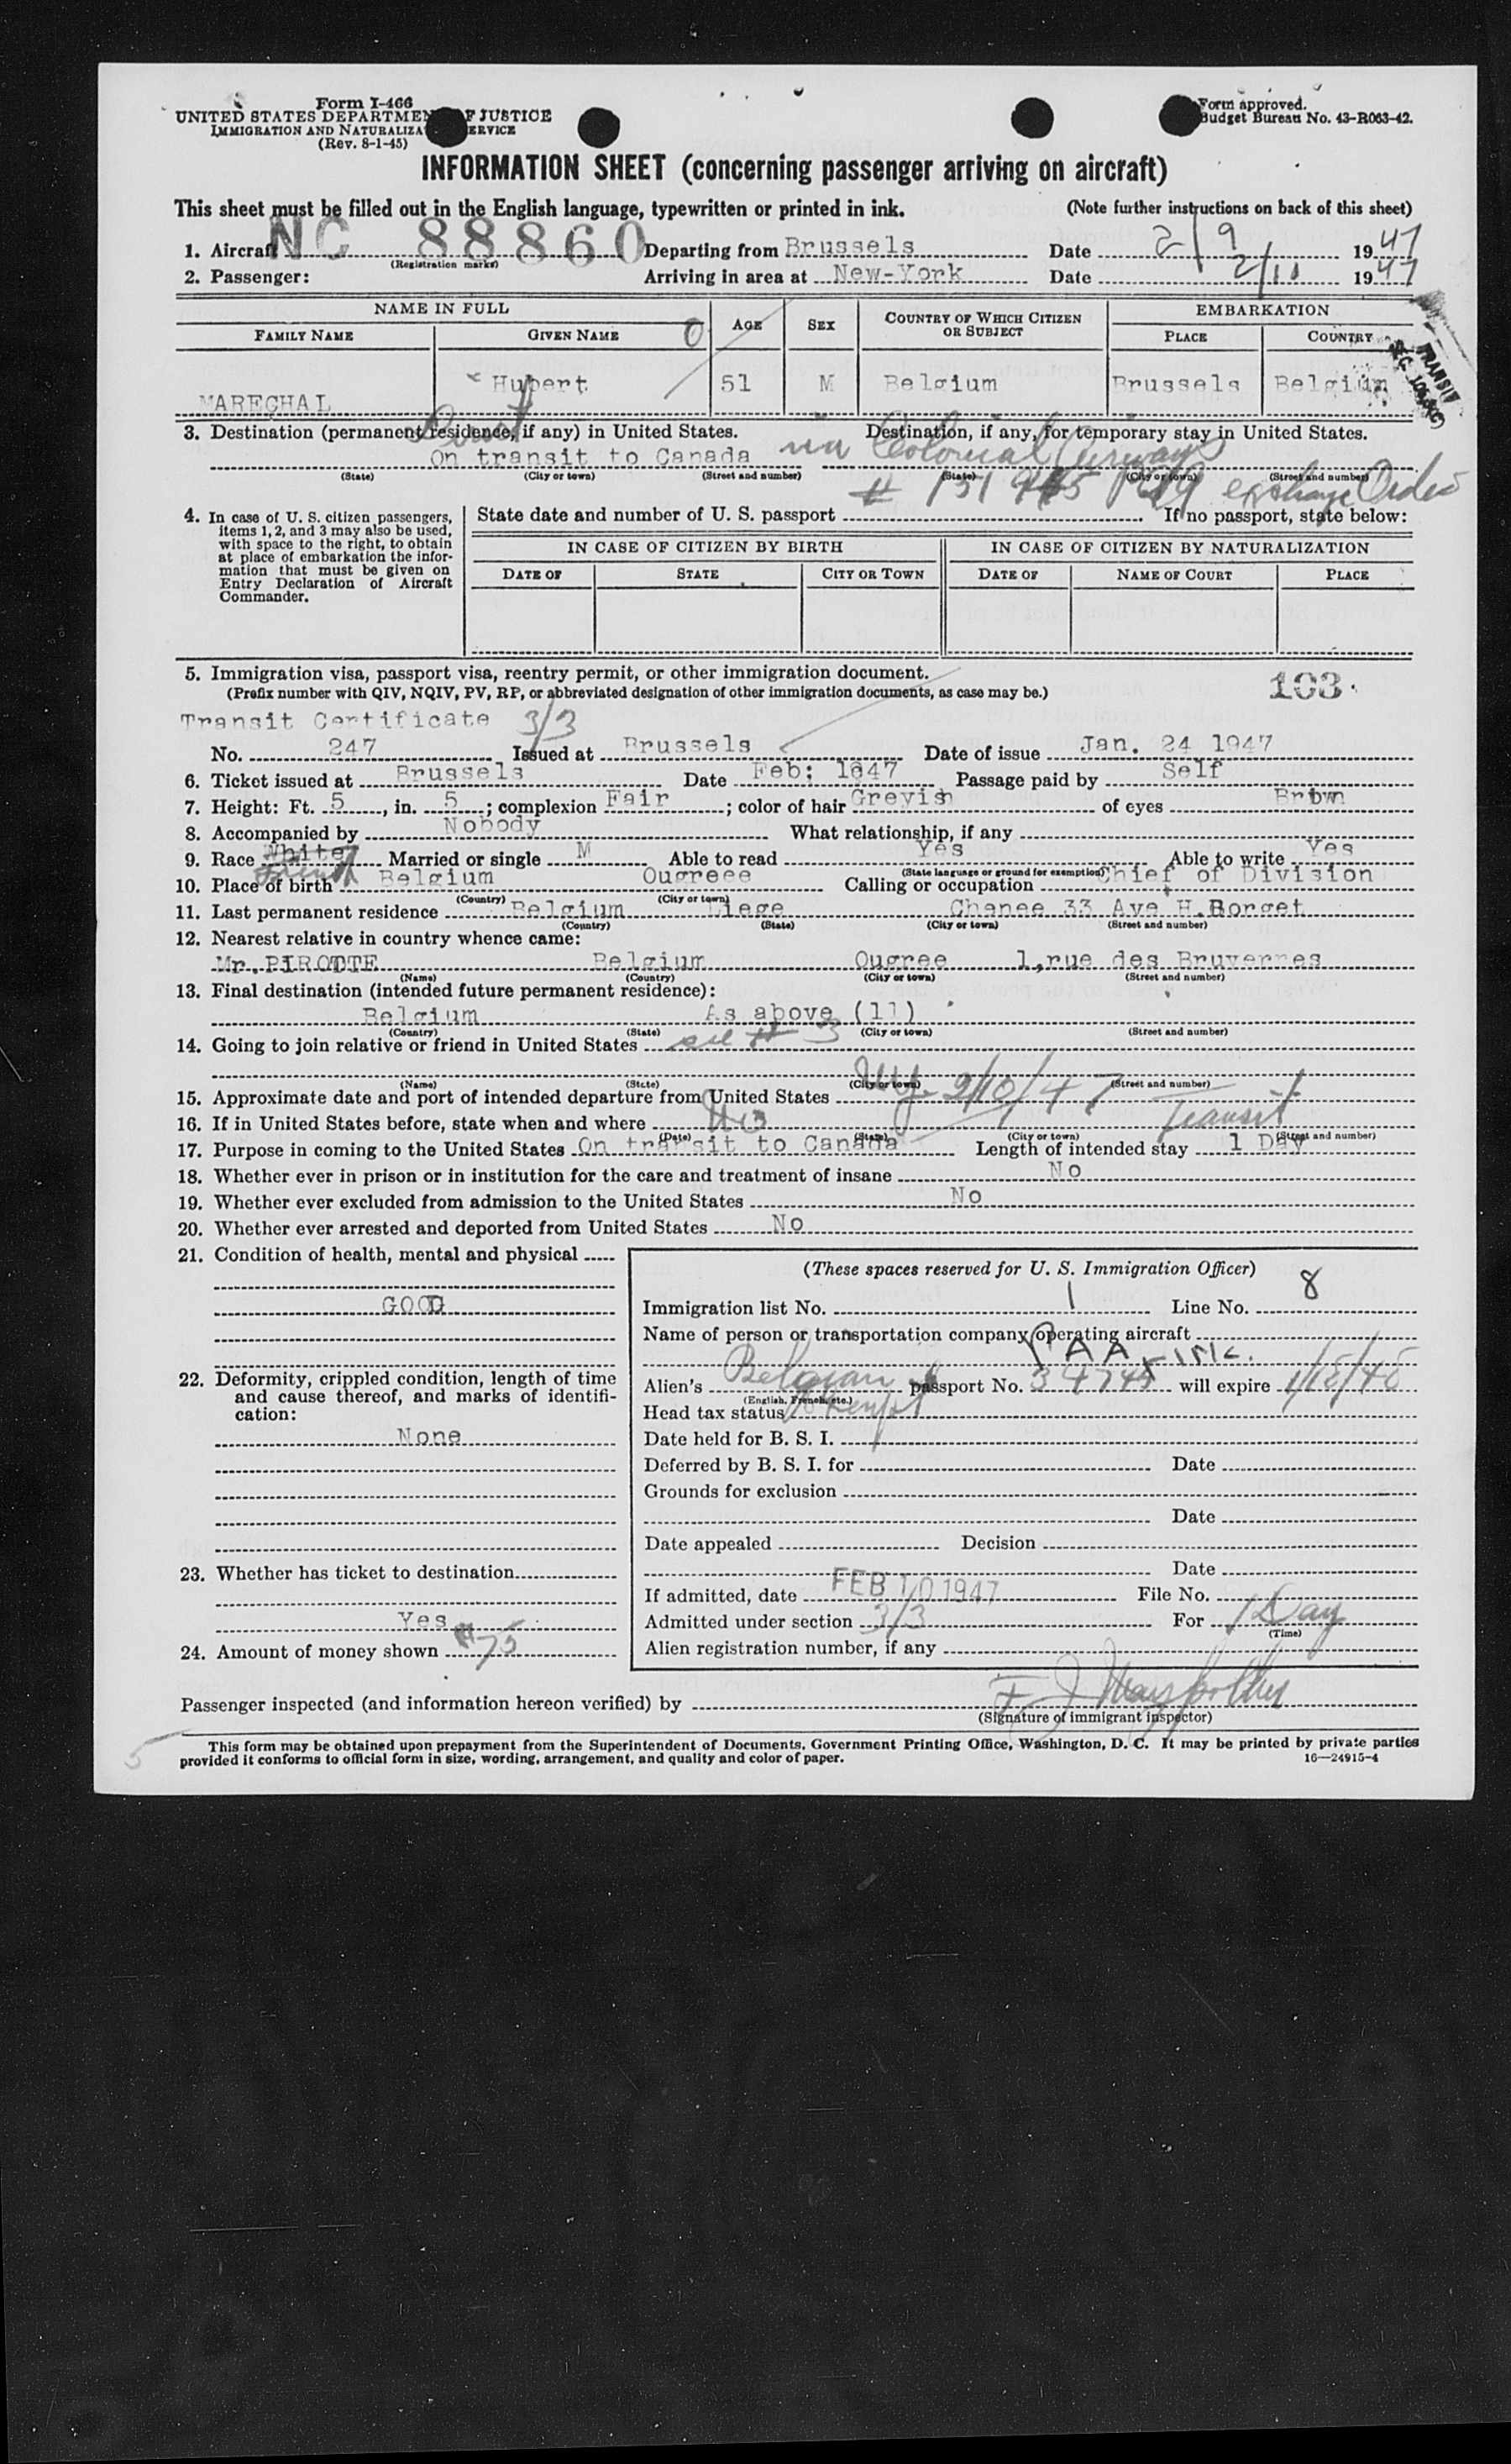 Form I-466
UNITED STATES DEPARTMENT OF JUSTICE
IMMIGRATION AND NATURALIZATION SERVICE
(Rev. 8-1-45)
Form approved.
Budget Bureau No. 43-R063-42.
INFORMATION SHEET (concerning passenger arriving on aircraft)
This sheet must be filled out in the English language, typewritten or printed in ink. (Note further instructions on back of this sheet)
1. Aircraft NC 88860 Departing from Brussels Date 2/9 1947
(Registration marks)
2. Passenger: Arriving in area at New-York Date 2/10 1947
NAME IN FULL AGE SEX COUNTRY OF WHICH CITIZEN OR SUBJECT EMBARKATION
FAMILY NAME GIVEN NAME PLACE COUNTRY
MARECHAL Hubert 51 M Belgium Brussels Belgium
TRANSIT
3. Destination (permanent residence, if any) in United States. Destination, if any, for temporary stay in United States.
On transit to Canada via Colonial Airways
(State) (City or town) (Street and number) (State) (City or town) (Street and number)
exchange Order
4. In case of U. S. citizen passengers, items 1, 2, and 3 may also be used, with space to the right, to obtain at place of embarkation the information that must be given on Entry Declaration of Aircraft Commander.
State date and number of U. S. passport If no passport, state below:
IN CASE OF CITIZEN BY BIRTH IN CASE OF CITIZEN BY NATURALIZATION
DATE OF STATE CITY OR TOWN DATE OF NAME OF COURT PLACE
5. Immigration visa, passport visa, reentry permit, or other immigration document.
(Prefix number with QIV, NQIV, PV, RP, or abbreviated designation of other immigration documents, as case may be.)
103
Transit Certificate 3/3
No. 247 Issued at Brussels Date of issue Jan. 24 1947
6. Ticket issued at Brussels Date Feb: 1847 Passage paid by Self
7. Height: Ft. 5, in. 5; complexion Fair; color of hair Greyish of eyes Brown
8. Accompanied by Nobody What relationship, if any
9. Race White French Married or single M Able to read Yes Able to write Yes
(State language or ground for exemption)
10. Place of birth Belgium Ougreee Calling or occupation Chief of Division
(Country) (City or town)
11. Last permanent residence Belgium Liege Chenee 33 Ave H.Borget
(Country) (State) (City or town) (Street and number)
12. Nearest relative in country whence came:
Mr.PIROTTE Belgium Ougree 1,rue des Bruyernes
(Name) (Country) (City or town) (Street and number)
13. Final destination (intended future permanent residence):
Belgium As above (11)
(Country) (State) (City or town) (Street and number)
14. Going to join relative or friend in United States see # 3
(Name) (State) (City or town) (Street and number)
15. Approximate date and port of intended departure from United States NY 2/10/47
16. If in United States before, state when and where Transit
(Date) (State) (City or town) (Street and number)
17. Purpose in coming to the United States On transit to Canada Length of intended stay 1 Day
18. Whether ever in prison or in institution for the care and treatment of insane No
19. Whether ever excluded from admission to the United States No
20. Whether ever arrested and deported from United States No
21. Condition of health, mental and physical
GOOD
22. Deformity, crippled condition, length of time and cause thereof, and marks of identification:
None
23. Whether has ticket to destination
Yes
24. Amount of money shown $75
(These spaces reserved for U. S. Immigration Officer)
Immigration list No. 1 Line No. 8
Name of person or transportation company operating aircraft
PAA Inc.
Alien's Belgian passport No. 34745 will expire 1/18/48
(English, French, etc.)
Head tax status
Date held for B. S. I.
Deferred by B. S. I. for Date
Grounds for exclusion
Date
Date appealed Decision
Date
If admitted, date FEB 10 1947 File No.
Admitted under section 3/3 For 1 Day
(Time)
Alien registration number, if any
Passenger inspected (and information hereon verified) by
(Signature of immigrant inspector)
5
This form may be obtained upon prepayment from the Superintendent of Documents, Government Printing Office, Washington, D. C. It may be printed by private parties
provided it conforms to official form in size, wording, arrangement, and quality and color of paper. 16—24915-4